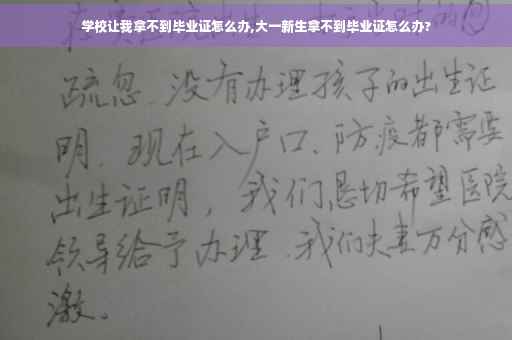 学校让我拿不到毕业证怎么办,大一新生拿不到毕业证怎么办?
疏忽、没有办理孩子的出生证
明、现在入户口、防疫都需要
出生证明，我们恳切希望医院
领导给予办理、我们夫妻万分感
激。